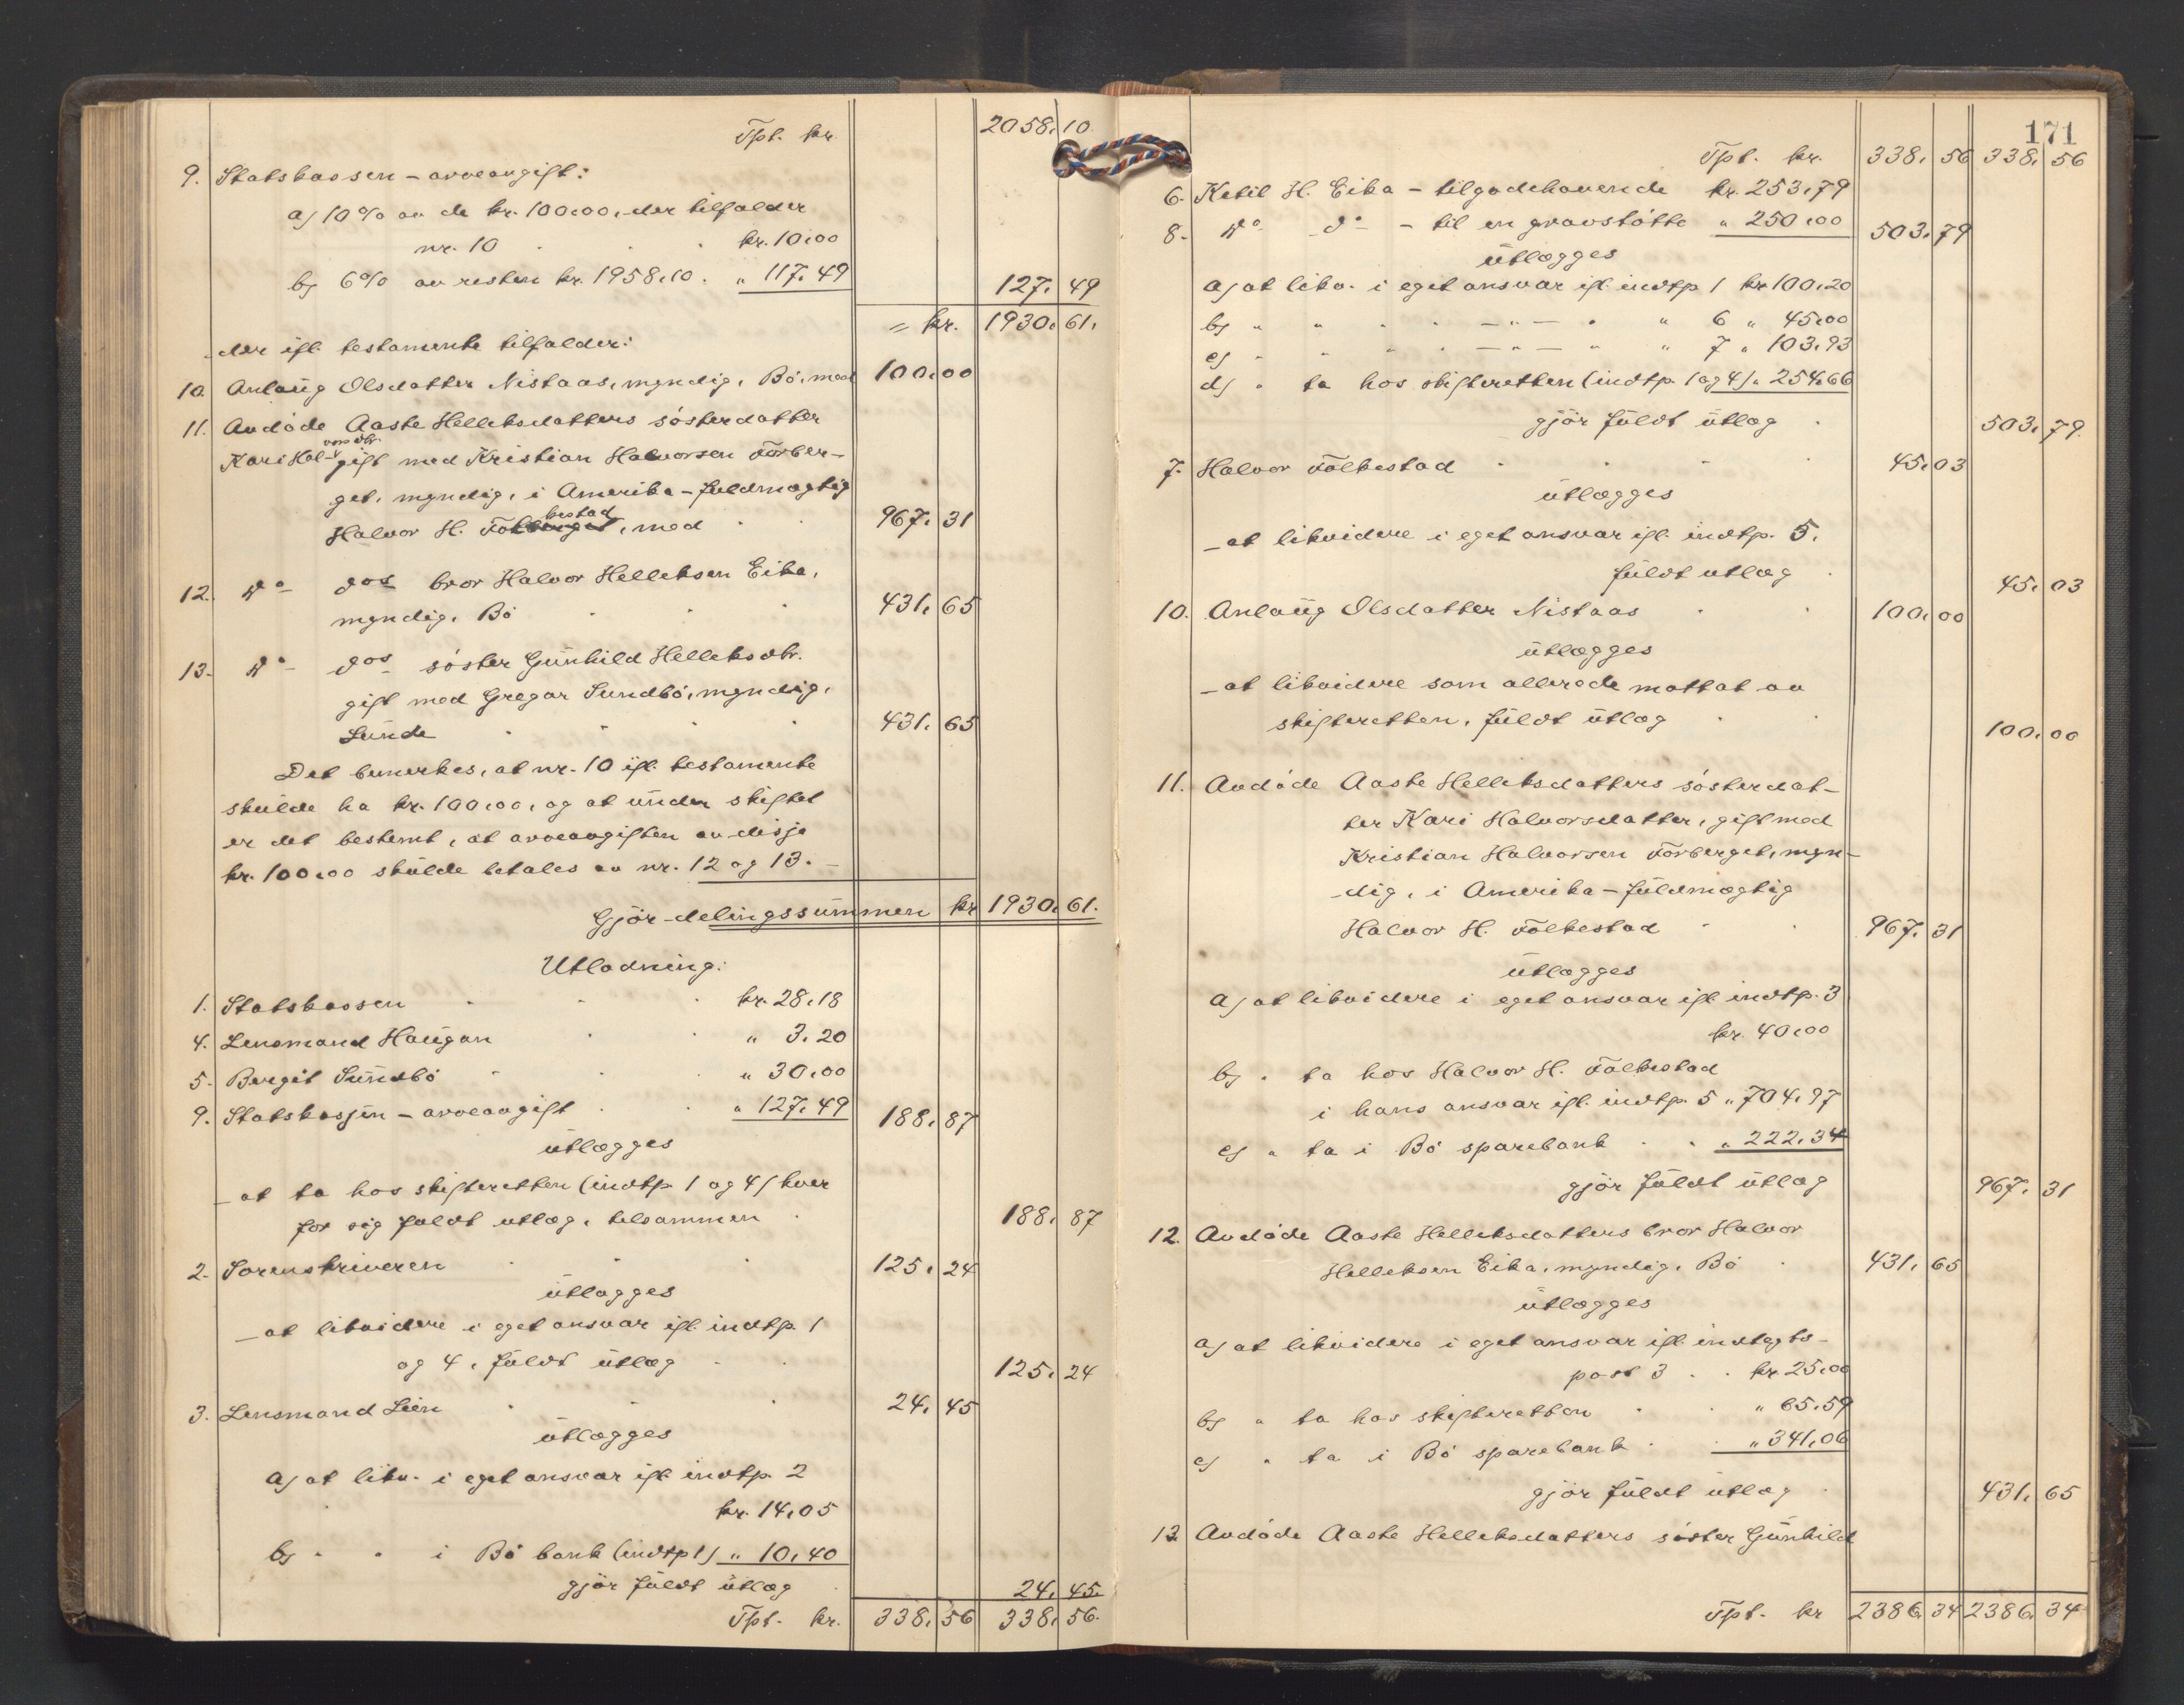 Tpt. kr. 2058,10
9. Statskassen – arveavgift:
a) 10% av de kr. 100,00, der tilfalder
nr. 10 . . kr. 10,00
b) 6% av resten kr. 1958,10. " 117,49 127,49
= kr. 1930,61.
der ifl. testamente tilfalder:
10. Anlaug Olsdatter Nistaas, myndig, Bö, med 100,00
11. Avdöde Aaste Helleksdatters sösterdatter
Kari Hal- vorsdtr. gift med Kristian Halvorsen Forber-
get, myndig, i Amerika – fuldmægtig
Halvor H. Folkestad, med . . 967,31
12. Do dos bror Halvor Helleksen Eika,
myndig, Bö . . . 431,65
13. Do dos söster Gunhild Helleksdtr.
gift med Gregar Sundbö, myndig,
Lunde . . . 431,65
Det bemerkes, at nr. 10 ifl. testamente
skulde ha kr. 100,00, og at under skiftet
er det bestemt, at arveavgiften av disse
kr. 100,00 skulde betales av nr. 12 og 13. –
Gjör delingssummen kr 1930,61.
Utlodning:
1. Statskassen . . . kr. 28,18
4. Lensmand Haugan . . " 3,20
5. Bergit Sundbö . . . " 30,00
9. Statskassen – arveavgift . . " 127,49 188,87
utlægges
– at ta hos skifteretten (indtp. 1 og 4) hver
for sig fuldt utlæg, tilsammen . 188,87
2. Sorenskriveren . . . 125,24
utlægges
– at likvidere i eget ansvar ifl. indtp. 1
og 4, fuldt utlæg . . 125,24
3. Lensmand Lien . . . 24,45
utlægges
a) at likv. i eget ansvar ifl. indtp. 2
kr. 14,05
b) " " i Bö bank (indtp 1) " 10,40
gjör fuldt utlæg . 24,45.
Tpt. kr. 338,56 338,56.
171
Tpt. kr. 338,56 338,56
6. Ketil H. Eika – tilgodehavende kr. 253,79
8. Do do – til en gravstötte " 250,00 503,79
utlægges
a) at likv. i eget ansvar ifl. indtp 1 kr. 100,20
b) " " " " – " – " " 6 " 45,00
c) " " " " – " – " " 7 " 103,93
d) " ta hos skifteretten (indtp. 1 og 4) " 254,66
gjör fuldt utlæg . 503,79.
7. Halvor Folkestad . . . 45,03
utlægges
– at likvidere i eget ansvar ifl. indtp. 5,
fuldt utlæg . 45,03
10. Anlaug Olsdatter Nistaas . . 100,00
utlægges
– at likvidere som allerede mottat av
skifteretten, fuldt utlæg . . 100,00
11. Avdöde Aaste Helleksdatters sösterdat-
ter Kari Halvorsdatter, gift med
Kristian Halvorsen Forberget, myn-
dig, i Amerika – fuldmægtig
Halvor H. Folkestad . . 967,31
utlægges
a) at likvidere i eget ansvar ifl. indtp. 3
kr. 40,00
b) " ta hos Halvor H. Folkestad
i hans ansvar ifl. indtp. 5 " 704,97
c) " ta i Bö sparebank . . " 222,34
gjör fuldt utlæg 967,31
12. Avdöde Aaste Helleksdatters bror Halvor
Helleksen Eika, myndig, Bö . 431,65
utlægges
a) at likvidere i eget ansvar ifl. indtægts-
post 3 . . kr. 25,00
b) " ta hos skifteretten . . " 65,59
c) " ta i Bö sparebank . . " 341,06
gjör fuldt utlæg . 431,65
13 Avdöde Aaste Helleksdatters söster Gunhild
Tpt. kr 2386,34 2386,34